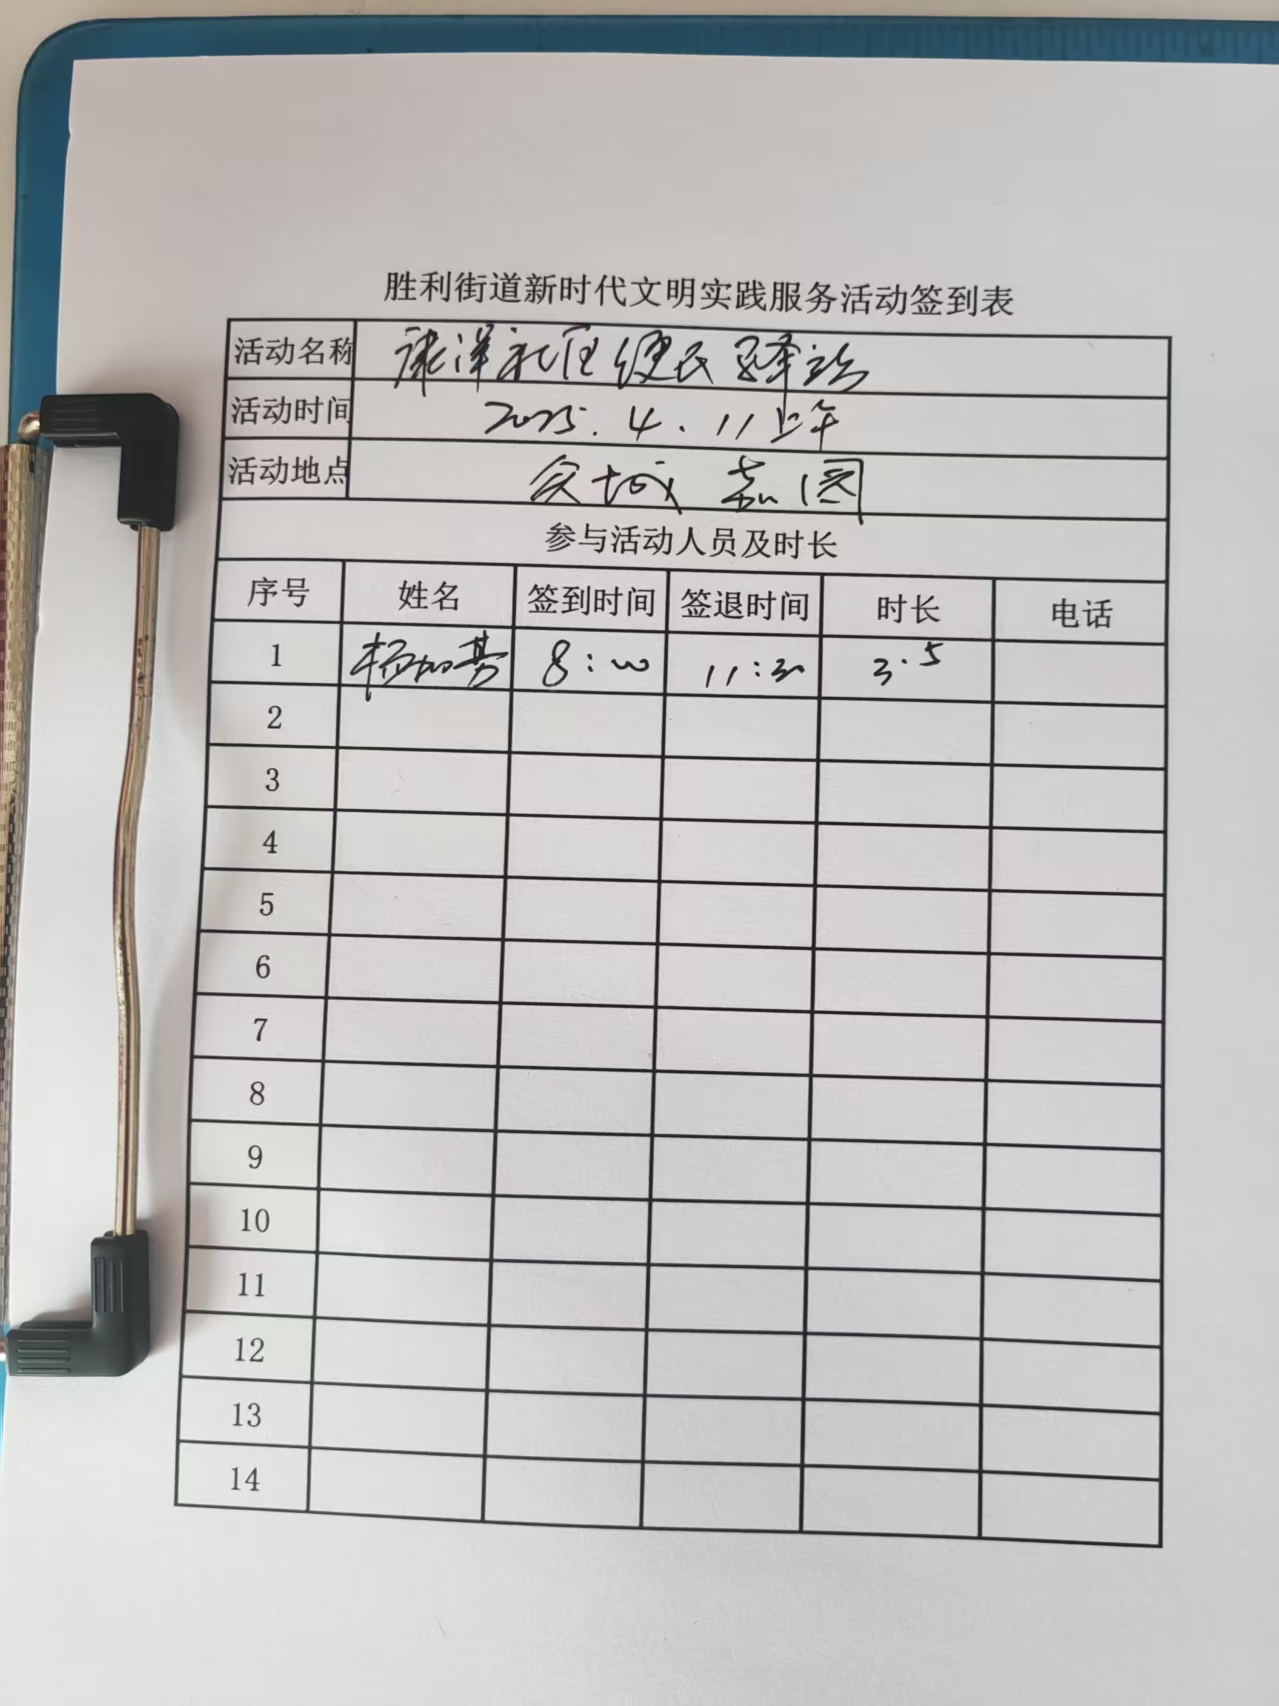 胜利街道新时代文明实践服务活动签到表
活动名称 社区便民驿站
活动时间 2025.4.11上午
活动地点 嘉园
参与活动人员及时长
序号 姓名 签到时间 签退时间 时长 电话
1 杨 8:00 11:30 3.5
2
3
4
5
6
7
8
9
10
11
12
13
14